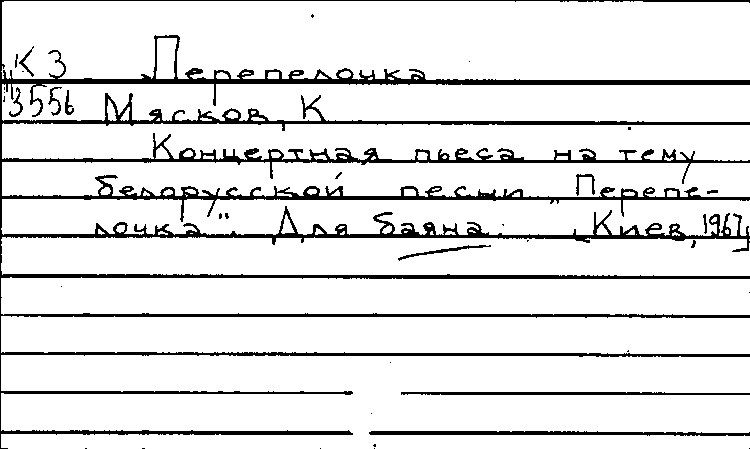 К 3 Перепелочка
3556 Мясков, К
Концертная пьеса на тему
белорусской песни „Перепе-
лочка". Для баяна. [Киев, 1967]